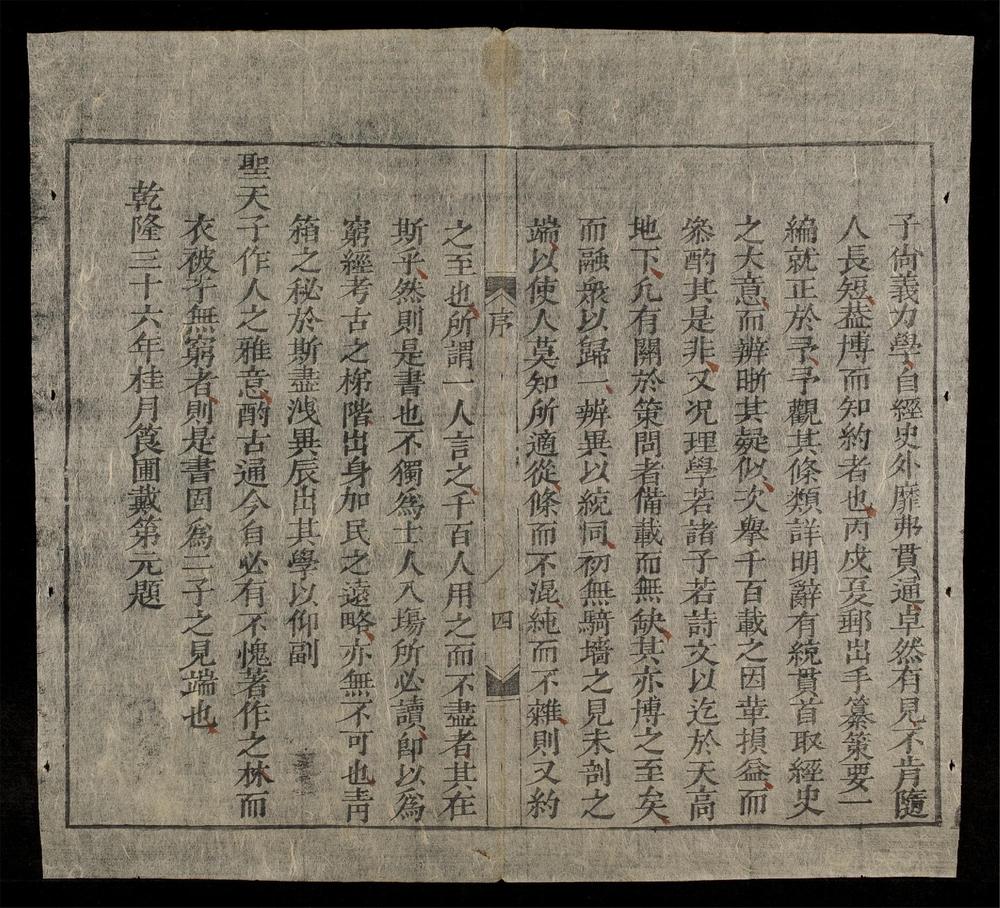 子尙義力學、自經史外靡弗貫通、卓然有見、不肯隨
人長短、葢博而知約者也、丙戌夏郵出手纂策要一
編就正於予、予觀其條類詳明辭有統貫首取經史
之大意、而辨晣其疑似、次舉千百載之因革損益、而
叅酌其是非、又况理學若諸子若詩文以迄於天高
地下、凢有關於策問者備載而無缺、其亦博之至矣、
而融衆以歸一、辨異以統同、初無騎墻之見未剖之
端、以使人莫知所適從、條而不混、純而不雜、則又約
序
四
之至也、所謂一人言之、千百人用之而不盡者其在
斯乎、然則是書也不獨爲士人入塲所必讀、卽以爲
窮經考古之梯階、出身加民之遠略、亦無不可也、靑
箱之秘於斯盡洩異辰出其學以仰副
聖天子作人之雅意、酌古通今自必有不愧著作之林、而
衣被于無窮者、則是書固爲二子之見端也、
乾隆三十六年桂月筤圃戴第元題